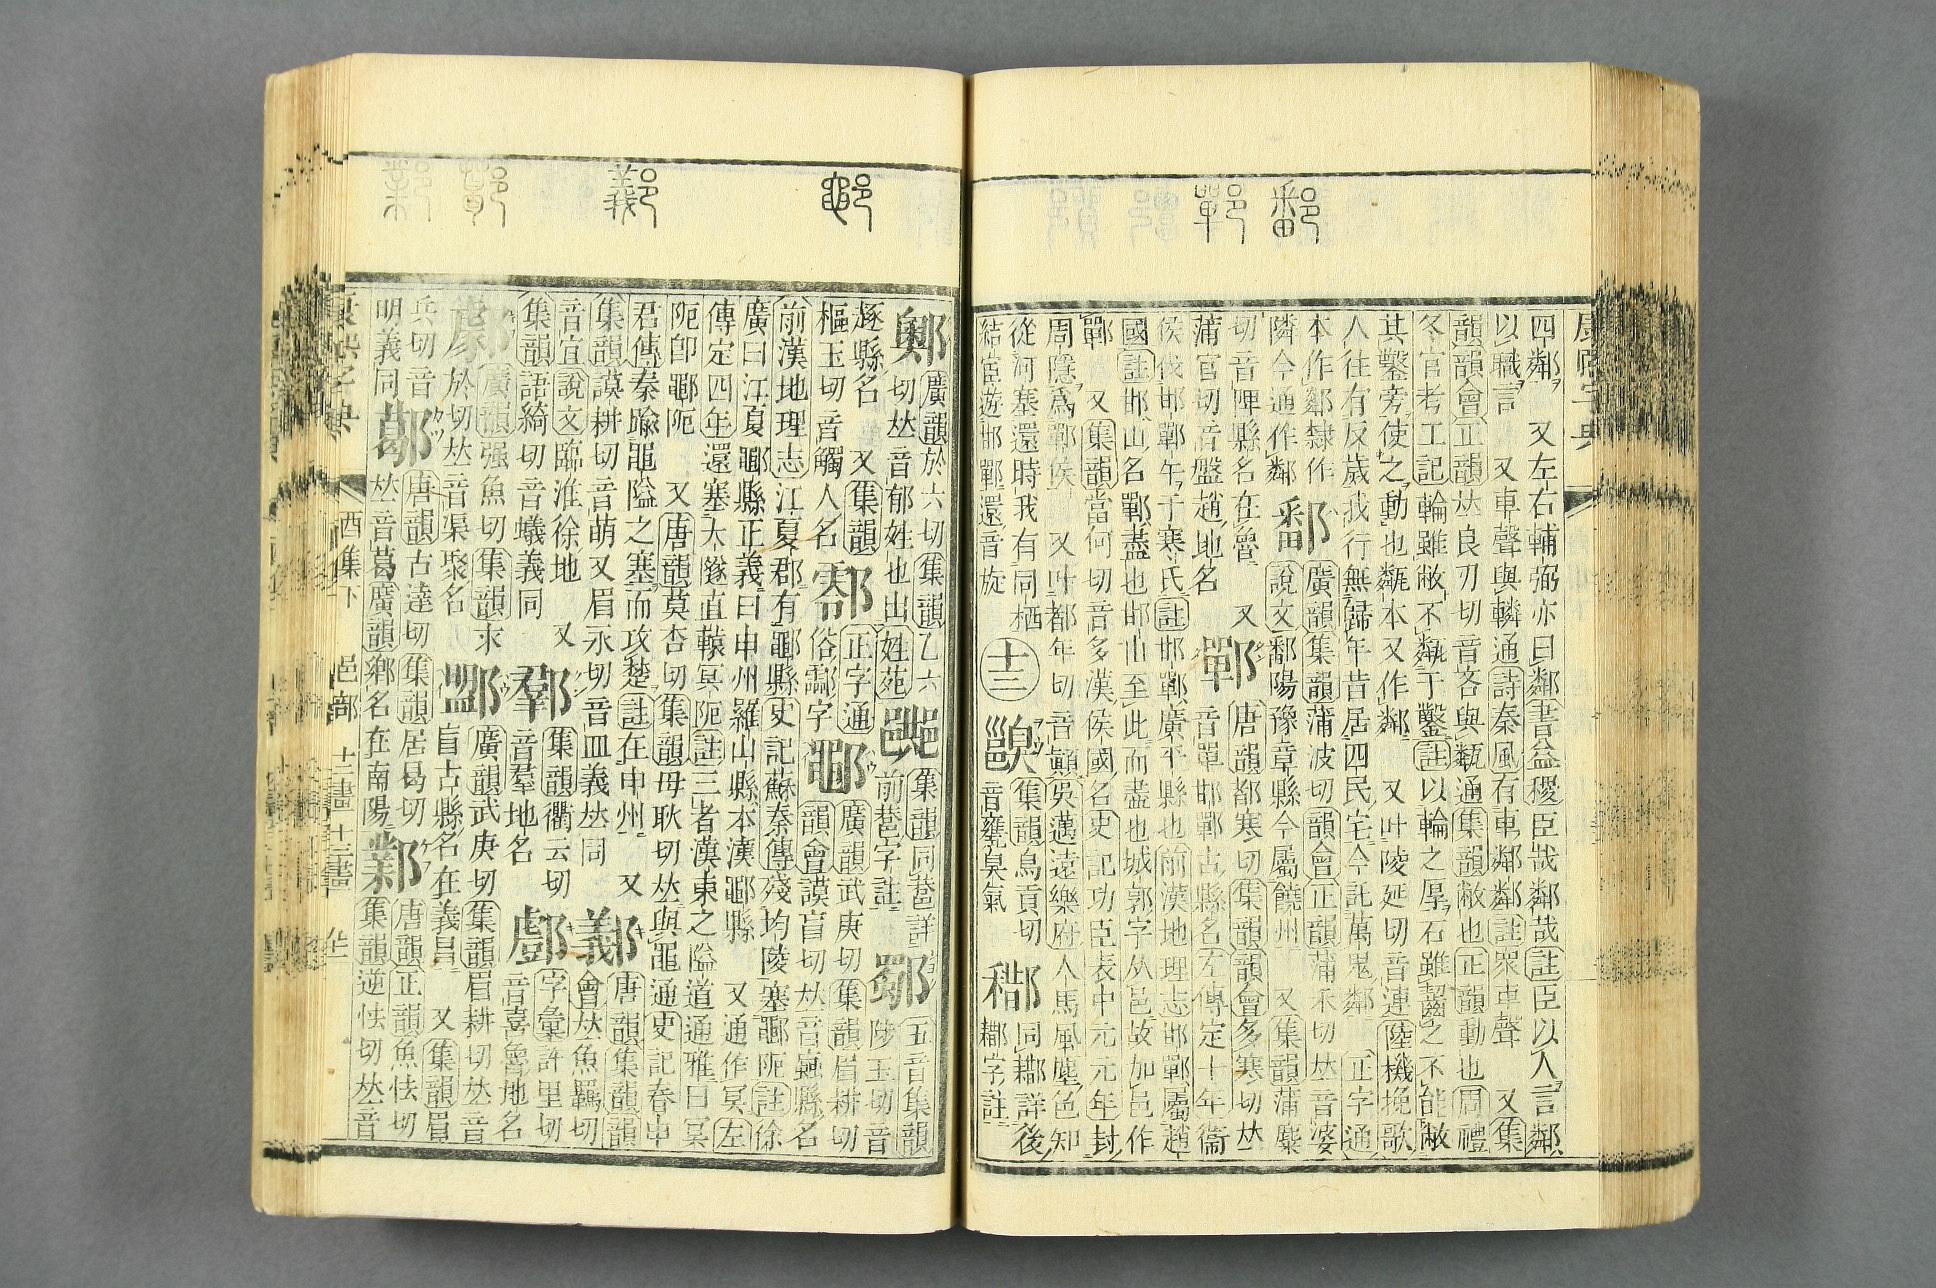 鄱
鄲
四鄰 又左右輔弼亦曰鄰書益稷臣哉鄰哉註臣以人言鄰
以職言 又車聲與轔通詩秦風有車鄰鄰註眾車聲 又集
韻韻會正韻𠀤良刃切音吝與甐通集韻敝也正韻動也周禮
冬官考工記輪雖敝不甐于鑿註以輪之厚石雖齧之不能敝
其鑿旁使之動也甐本又作鄰 又叶陵延切音連陸機挽歌
人往有反歲我行無歸年昔居四民宅今託萬鬼鄰 正字通
本作鄰隸作
隣今通作鄰
鄱
廣韻集韻蒲波切韻會正韻蒲禾切𠀤音婆
說文鄱陽豫章縣今屬饒州 又集韻蒲麋
切音陴縣名在魯 又
蒲官切音盤趙地名
鄲
唐韻都寒切集韻韻會多寒切𠀤
音單邯鄲古縣名左傳定十年衞
侯伐邯鄲午于寒氏註邯鄲廣平縣也前漢地理志邯鄲屬趙
國註邯山名鄲盡也邯山至此而盡也城郭字从邑故加邑作
鄲 又集韻當何切音多漢侯國名史記功臣表中元元年封
周隱爲鄲侯 又叶都年切音顚吳邁遠樂府人馬風塵色知
從河塞還時我有同栖
結宦遊邯鄲還音旋
十二
集韻烏貢切
音甕臭氣
同鄯詳後
字註
鄳
鄴
廣韻於六切集韻乙六
切𠀤音郁姓也出姓苑
集韻同巷詳
前巷字註
鄒
五音集韻
陟玉切音
瘃縣名 又集韻
樞玉切音觸人名
正字通
俗酃字
鄳
廣韻武庚切集韻眉耕切
韻會謨盲切𠀤音蝱縣名
前漢地理志江夏郡有鄳縣史記蘇秦傳殘均陵塞鄳阨註徐
廣曰江夏鄳縣正義曰申州羅山縣本漢鄳縣 又通作冥左
傳定四年還塞大隧直轅冥阨註三者漢東之隘道通雅曰冥
阨卽鄳阨 又唐韻莫杏切集韻母耿切𠀤與黽通史記春申
君傳秦踰黽隘之塞而攻楚註在申州 又
集韻謨耕切音萌又眉永切音皿義𠀤同
唐韻集韻韻
會𠀤魚羈切
音宜說文臨淮徐地 又
集韻語綺切音蟻義同
集韻衢云切
音羣地名
字彙許里切
音喜魯地名
廣韻强魚切集韻求
於切𠀤音渠聚名
廣韻武庚切集韻眉耕切𠀤音
盲古縣名在義昌 又集韻眉
兵切音
明義同
唐韻古達切集韻居曷切
𠀤音葛廣韻鄉名在南陽
鄴
唐韻正韻魚怯切
集韻逆怯切𠀤音
酉集下 邑部 十二畫 十三畫